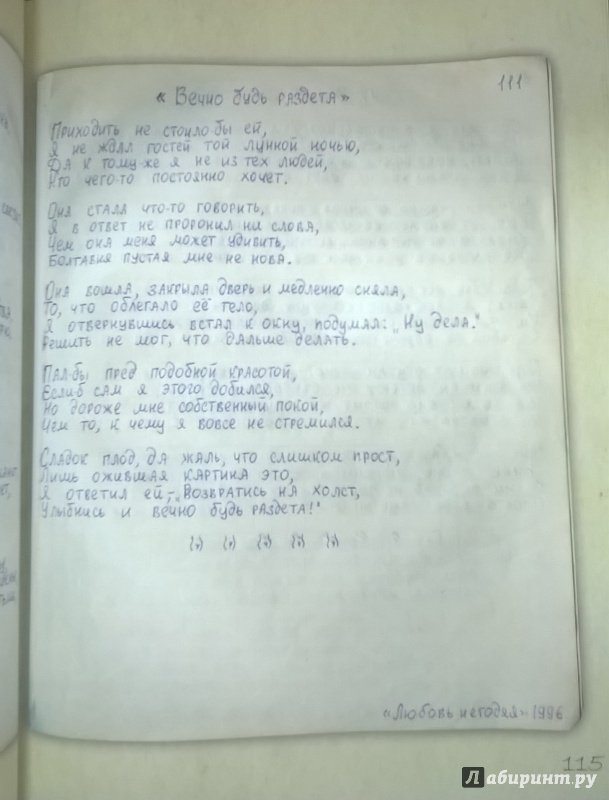 111
« Вечно будь раздета »
Приходить не стоило-бы ей,
Я не ждал гостей той лунной ночью,
Да к тому-же я не из тех людей,
Кто чего-то постоянно хочет.
Она стала что-то говорить,
Я в ответ не проронил ни слова,
Чем она меня может удивить,
Болтавня пустая мне не нова.
Она вошла, закрыла дверь и медленно сняла,
То, что облегало её тело,
Я отвернувшись встал к окну, подумал: „Ну дела."
Решить не мог, что дальше делать.
Пал-бы пред подобной красотой,
Если-б сам я этого добился,
Но дороже мне собственный покой,
Чем то, к чему я вовсе не стремился.
Сладок плод, да жаль, что слишком прост,
Лишь ожившая картина это,
Я ответил ей,-„Возвратись на холст,
Улыбнись и вечно будь раздета!"
«Любовь негодяя» 1996
115
Лабиринт.ру